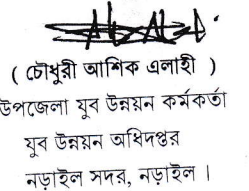 ( চৌধুরী আশিক এলাহী )
উপজেলা যুব উন্নয়ন কর্মকর্তা
যুব উন্নয়ন অধিদপ্তর
নড়াইল সদর, নড়াইল ।